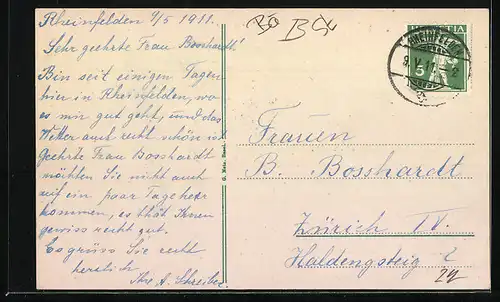 Rheinfelden 9/5 1911.
Sehr geehrte Frau Bosshardt!
Bin seit einigen Tagen
hier in Rheinfelden, wo
es mir gut geht, und das
Wetter auch recht schön ist
Geehrte Frau Bosshardt
möchten Sie nicht auch
auf ein paar Tage her
kommen, es thät Ihnen
gewiss recht gut.
Es grüss Sie recht
herzlich
Ihre A. Schreiber
HELVETIA
5
RHEINFELDEN
9. V. 11
Frauen
B. Bosshardt
Zürich IV.
Haldensteig 2